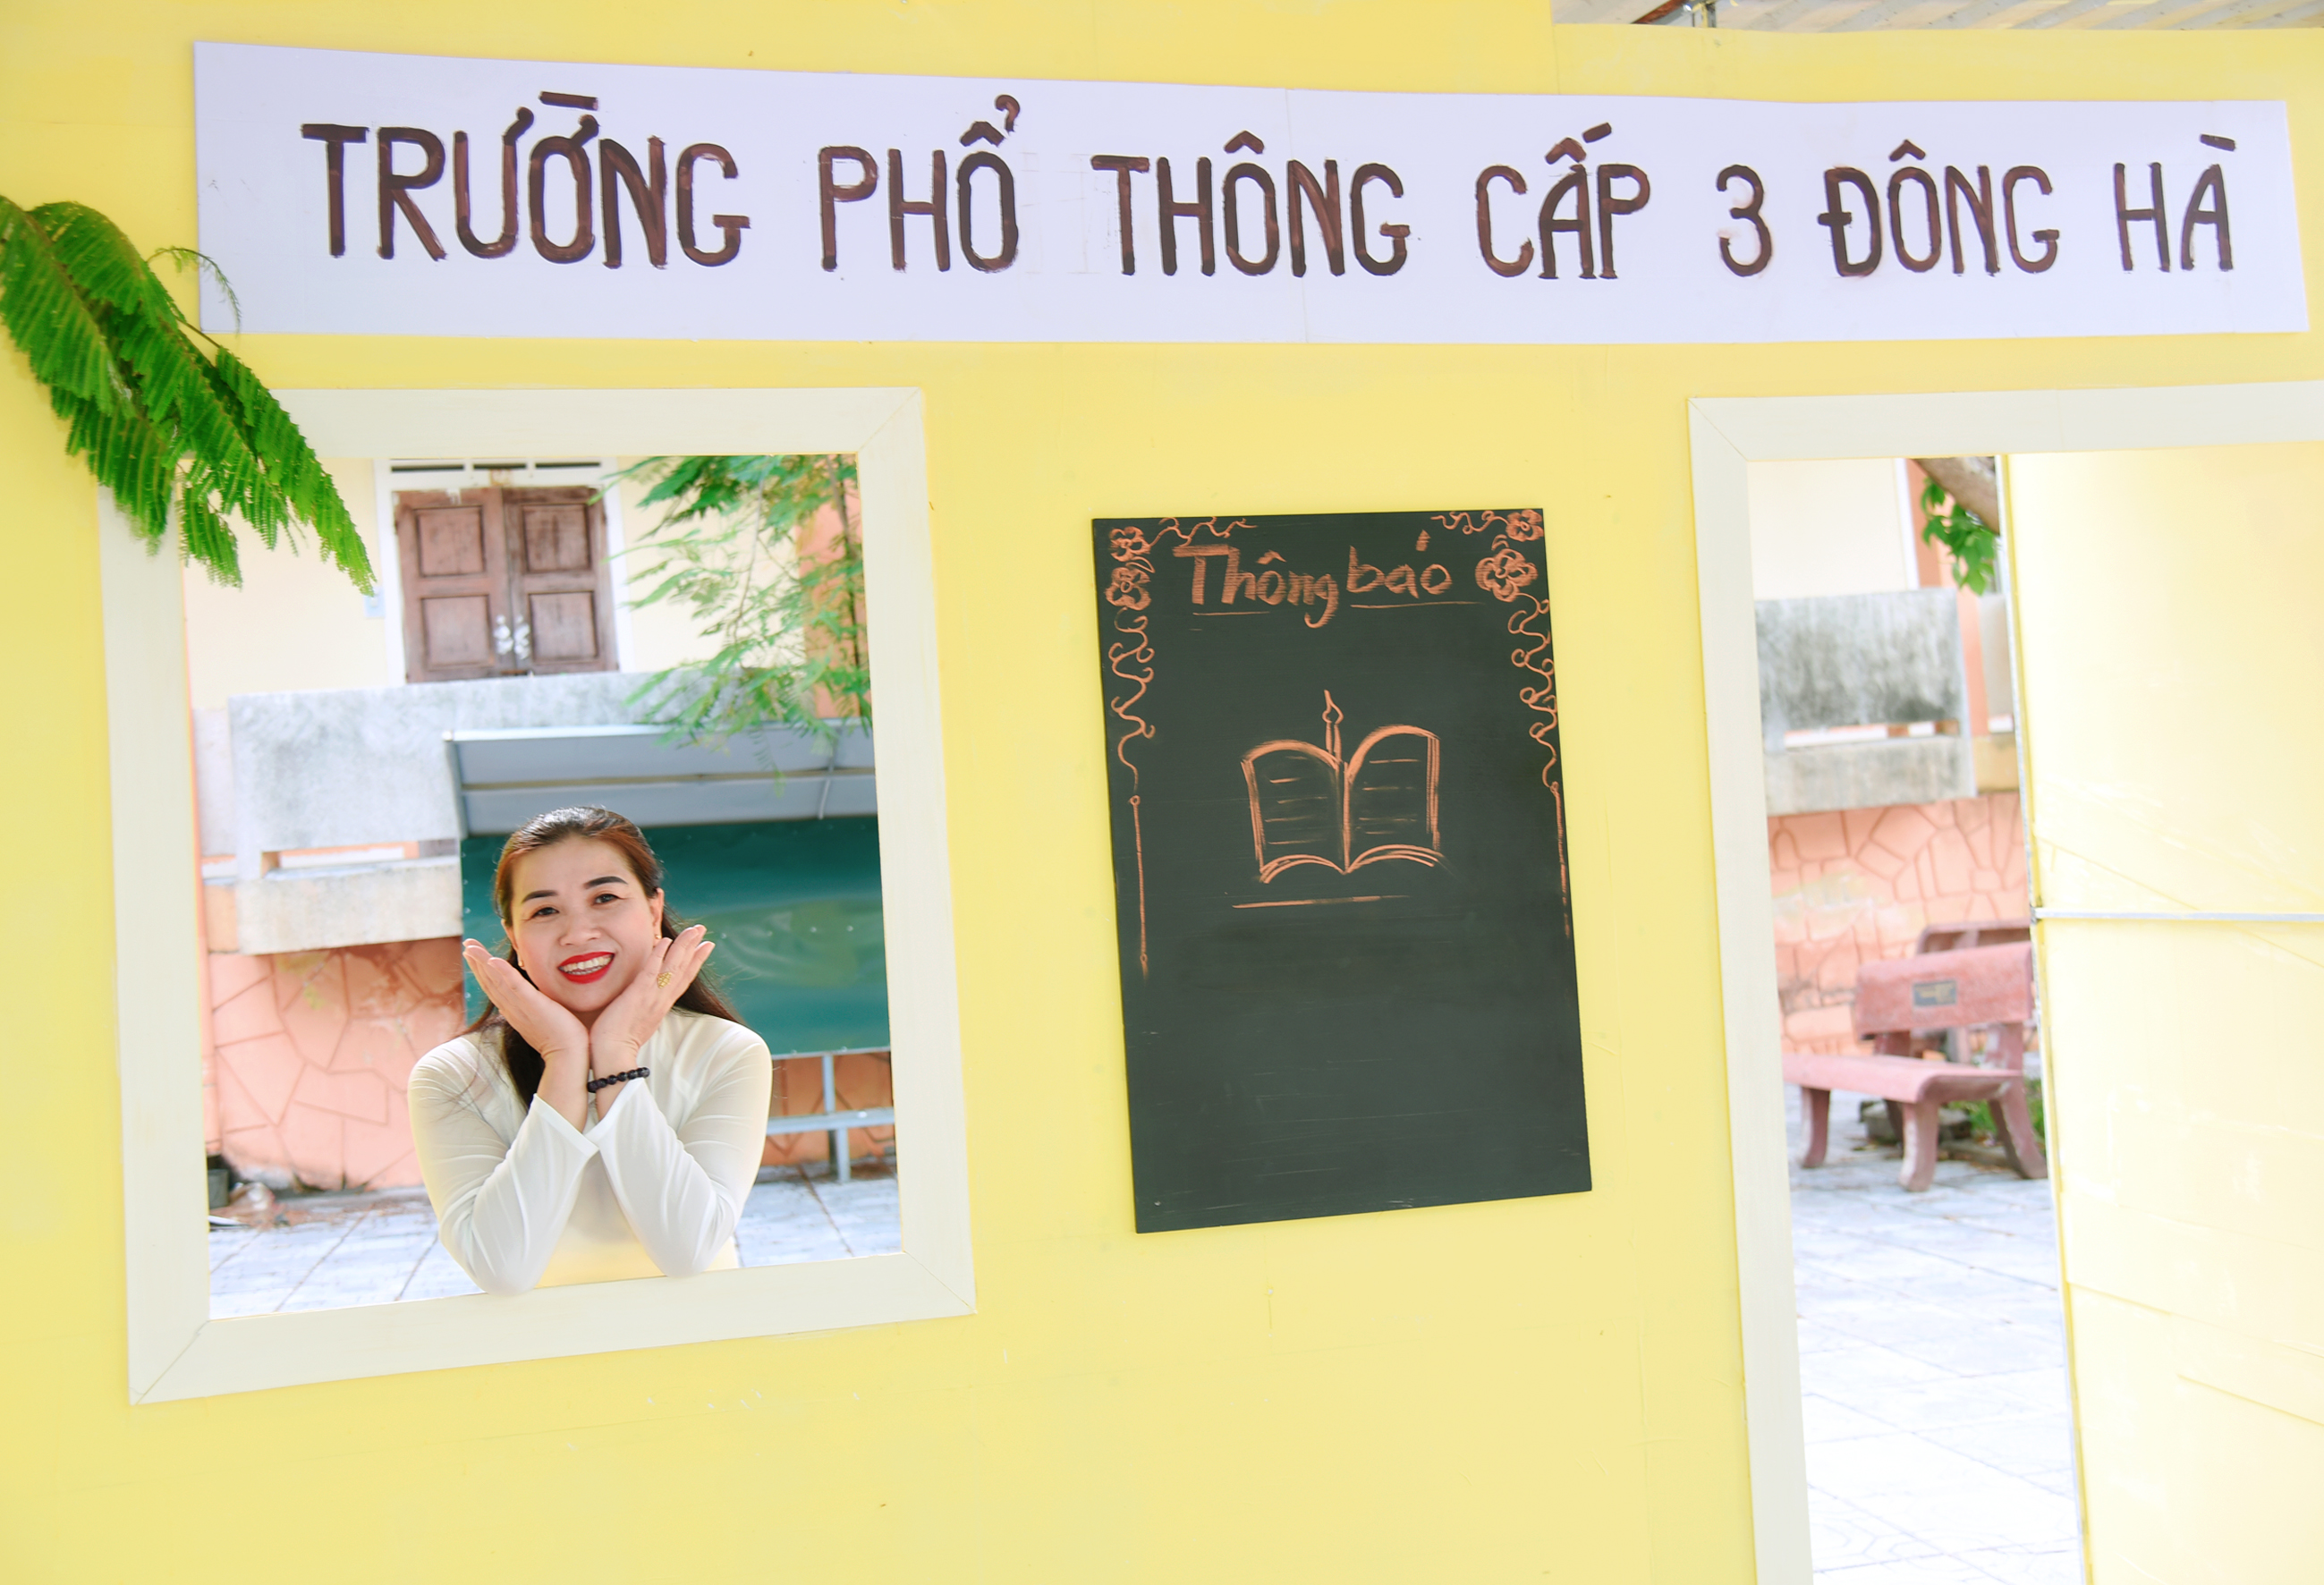 TRƯỜNG PHỔ THÔNG CẤP 3 ĐÔNG HÀ
Thông báo